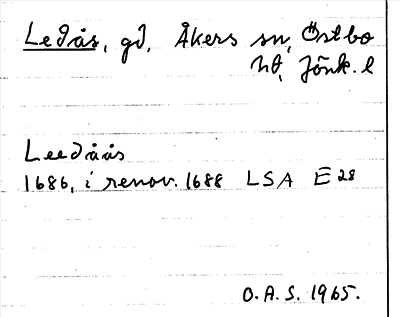 Ledås, gd, Åkers sn, Östbo
hd, Jönk. l
Leedåås
1686, i renov. 1688 LSA E 28
O.A.S. 1965.